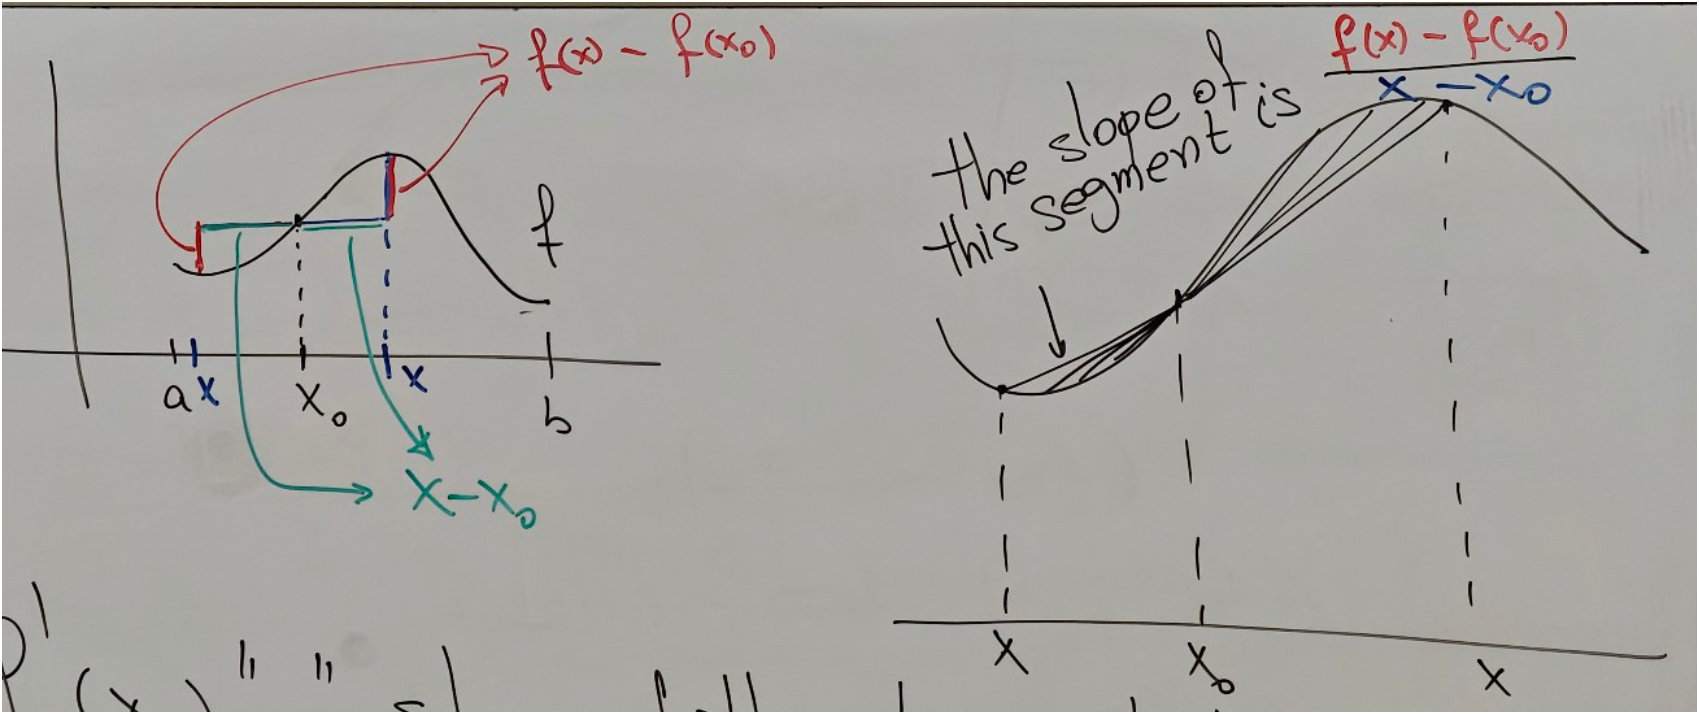 f(x) - f(x₀)
f
a x x₀ x b
x-x₀
the slope of
this segment is
f(x) - f(x₀)
x - x₀
x x₀ x
(x₀) " "